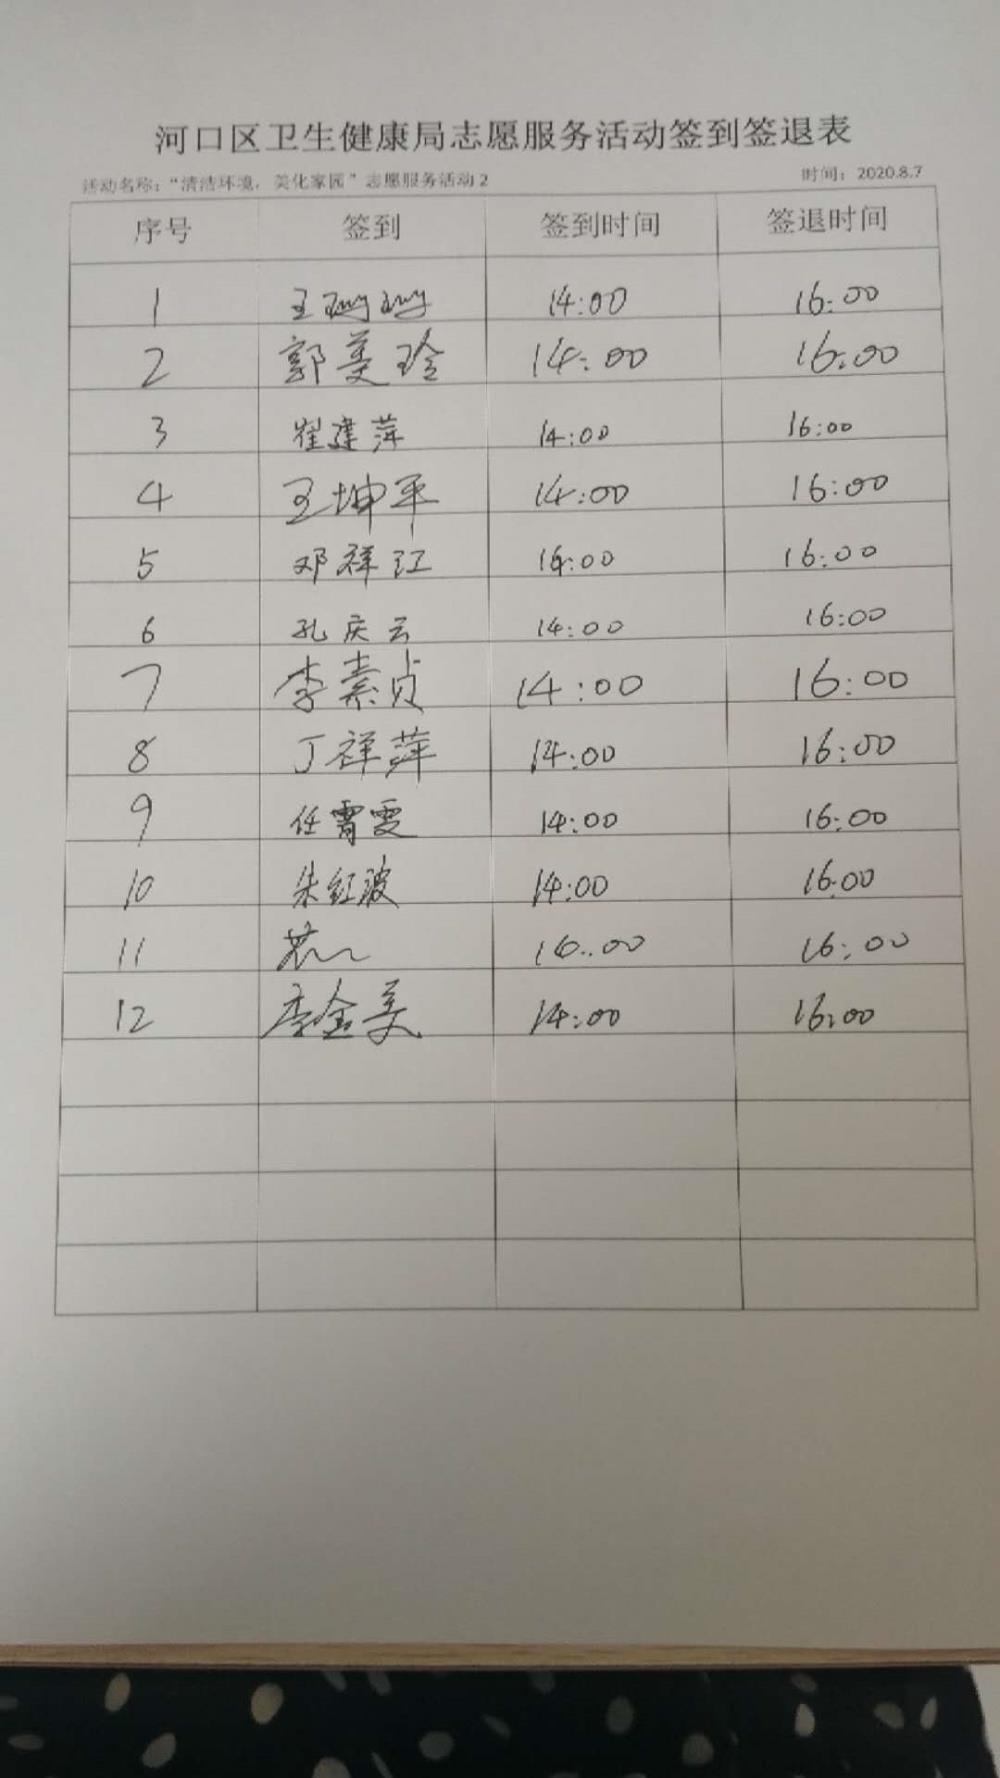 河口区卫生健康局志愿服务活动签到签退表
活动名称：“清洁环境，美化家园”志愿服务活动2 时间：2020.8.7
序号 签到 签到时间 签退时间
1 王珊珊 14:00 16:00
2 郭美玲 14:00 16:00
3 崔建萍 14:00 16:00
4 王坤平 14:00 16:00
5 邓祥江 14:00 16:00
6 孔庆云 14:00 16:00
7 李素贞 14:00 16:00
8 丁祥萍 14:00 16:00
9 任霄雯 14:00 16:00
10 朱红波 14:00 16:00
11 16:00
12 李金美 14:00 16:00